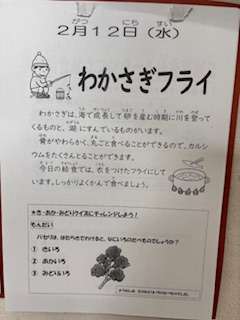 がつ にち すい
2月12日（水）
わかさぎフライ
わかさぎは、海で成長して卵を産む時期に川を登っ
てくるものと、湖にすんでいるものがいます。
骨がやわらかく、丸ごと食べることができるので、カルシ
ウムをたくさんとることができます。
今日の給食では、衣をつけたフライにして
います。しっかりよくかんで食べましょう。
★き・あか・みどりクイズにチャレンジしよう！
もんだい
パセリは、はたらきでわけると、なにいろのたべものでしょうか？
① きいろ
② あかいろ
③ みどりいろ